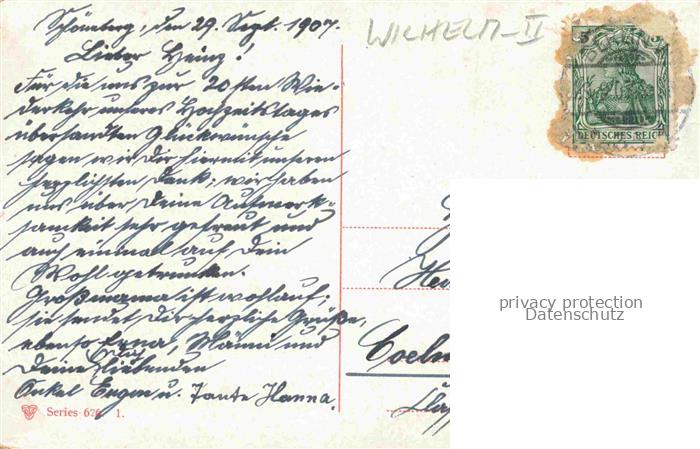 Schöneberg, den 29. Sept. 1907.
Lieber Heinz!
Für die uns zur 20sten Wie-
derkehr unseres Hochzeitstages
übersandten Glückwünsche
sagen wir Dir hiermit unseren
herzlichsten Dank; wir haben
uns über Deine Aufmerk-
samkeit sehr gefreut und
auch einmal auf Dein
Wohl getrunken.
Großmama ist wohlauf;
sie sendet Dir herzliche Grüße,
ebenso Erna, Männi und
Deine Dich liebenden
Onkel Eugen u. Tante Hanna.
Series 626 1.
WILHELM-II
5
DEUTSCHES REICH
Coeln
privacy protection
Datenschutz